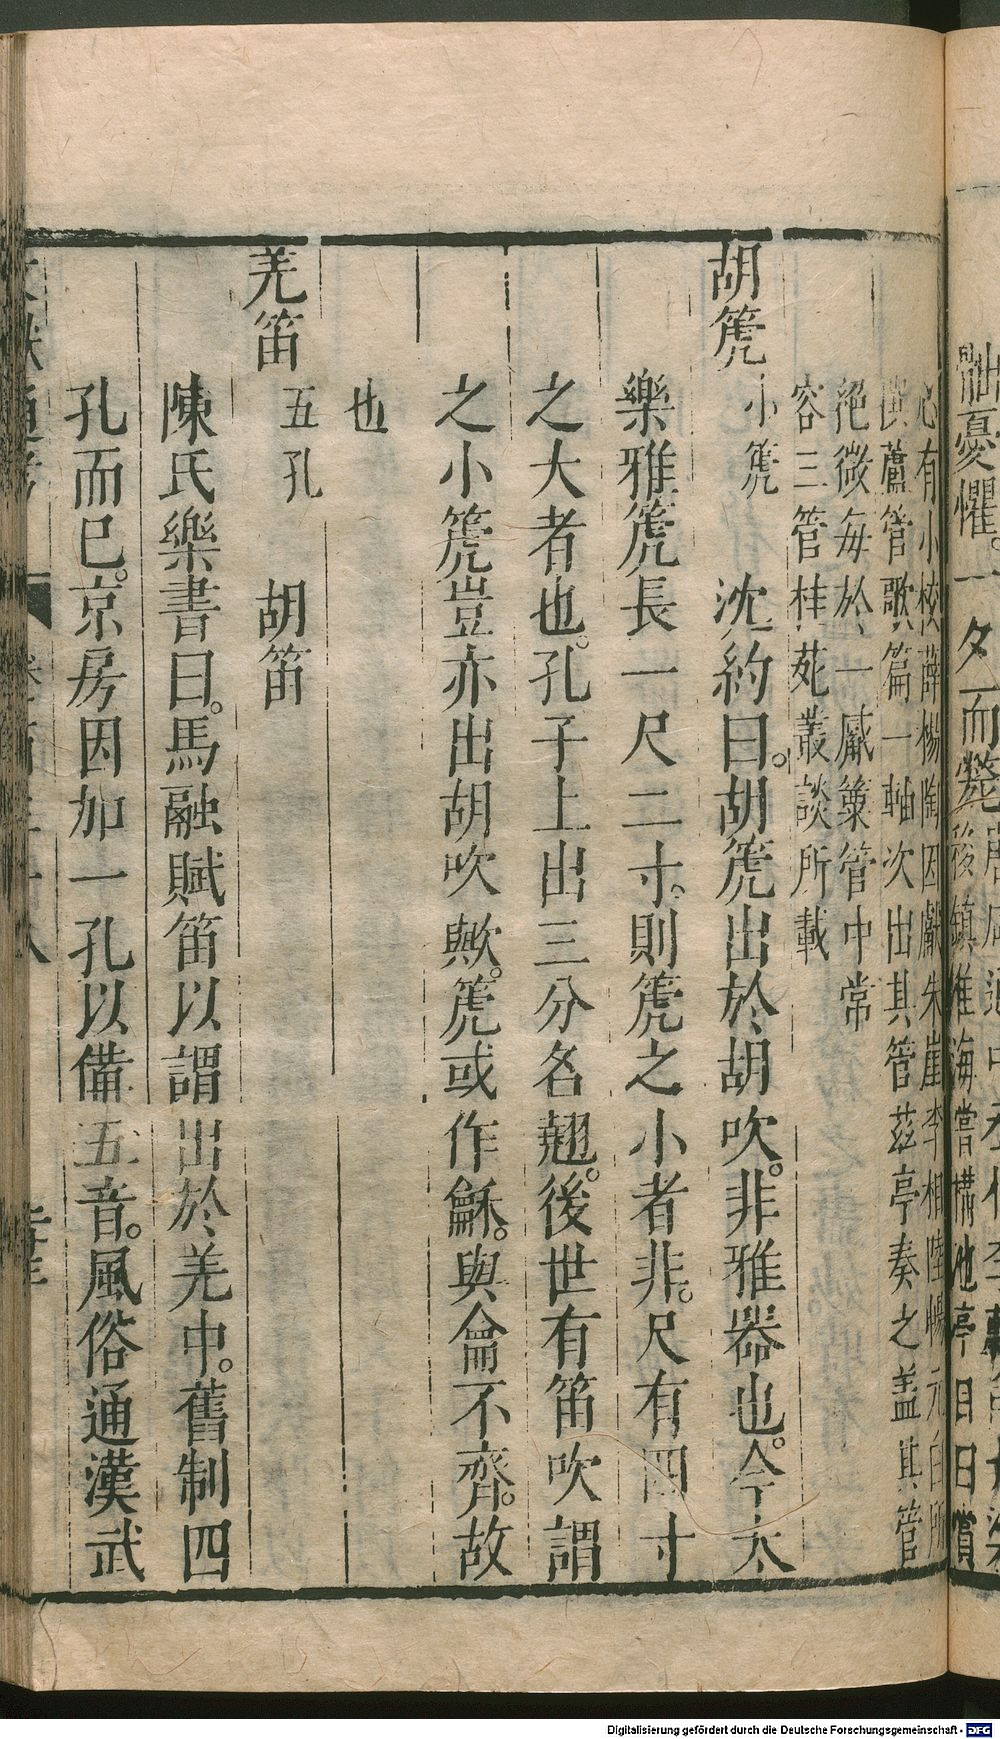 必有小校薛楊陶因獻朱崖李相陸暢元白所
撰蘆管歌篇一軸次出其管茲亭奏之盖其管
絕微每於一觱篥管中常
容三管桂苑叢談所載
胡篪 小篪 沈約曰。胡篪出於胡吹。非雅器也。今太
樂雅篪長一尺二寸。則篪之小者非。尺有四寸
之大者也。孔子上出三分名翹。後世有笛吹謂
之小篪豈亦出胡吹歟。篪或作龢。與侖不齊。故
也
羌笛 五孔 胡笛
陳氏樂書曰。馬融賦笛以謂出於羌中。舊制四
孔而巳。京房因加一孔以備五音。風俗通漢武
Digitalisierung gefördert durch die Deutsche Forschungsgemeinschaft - DFG